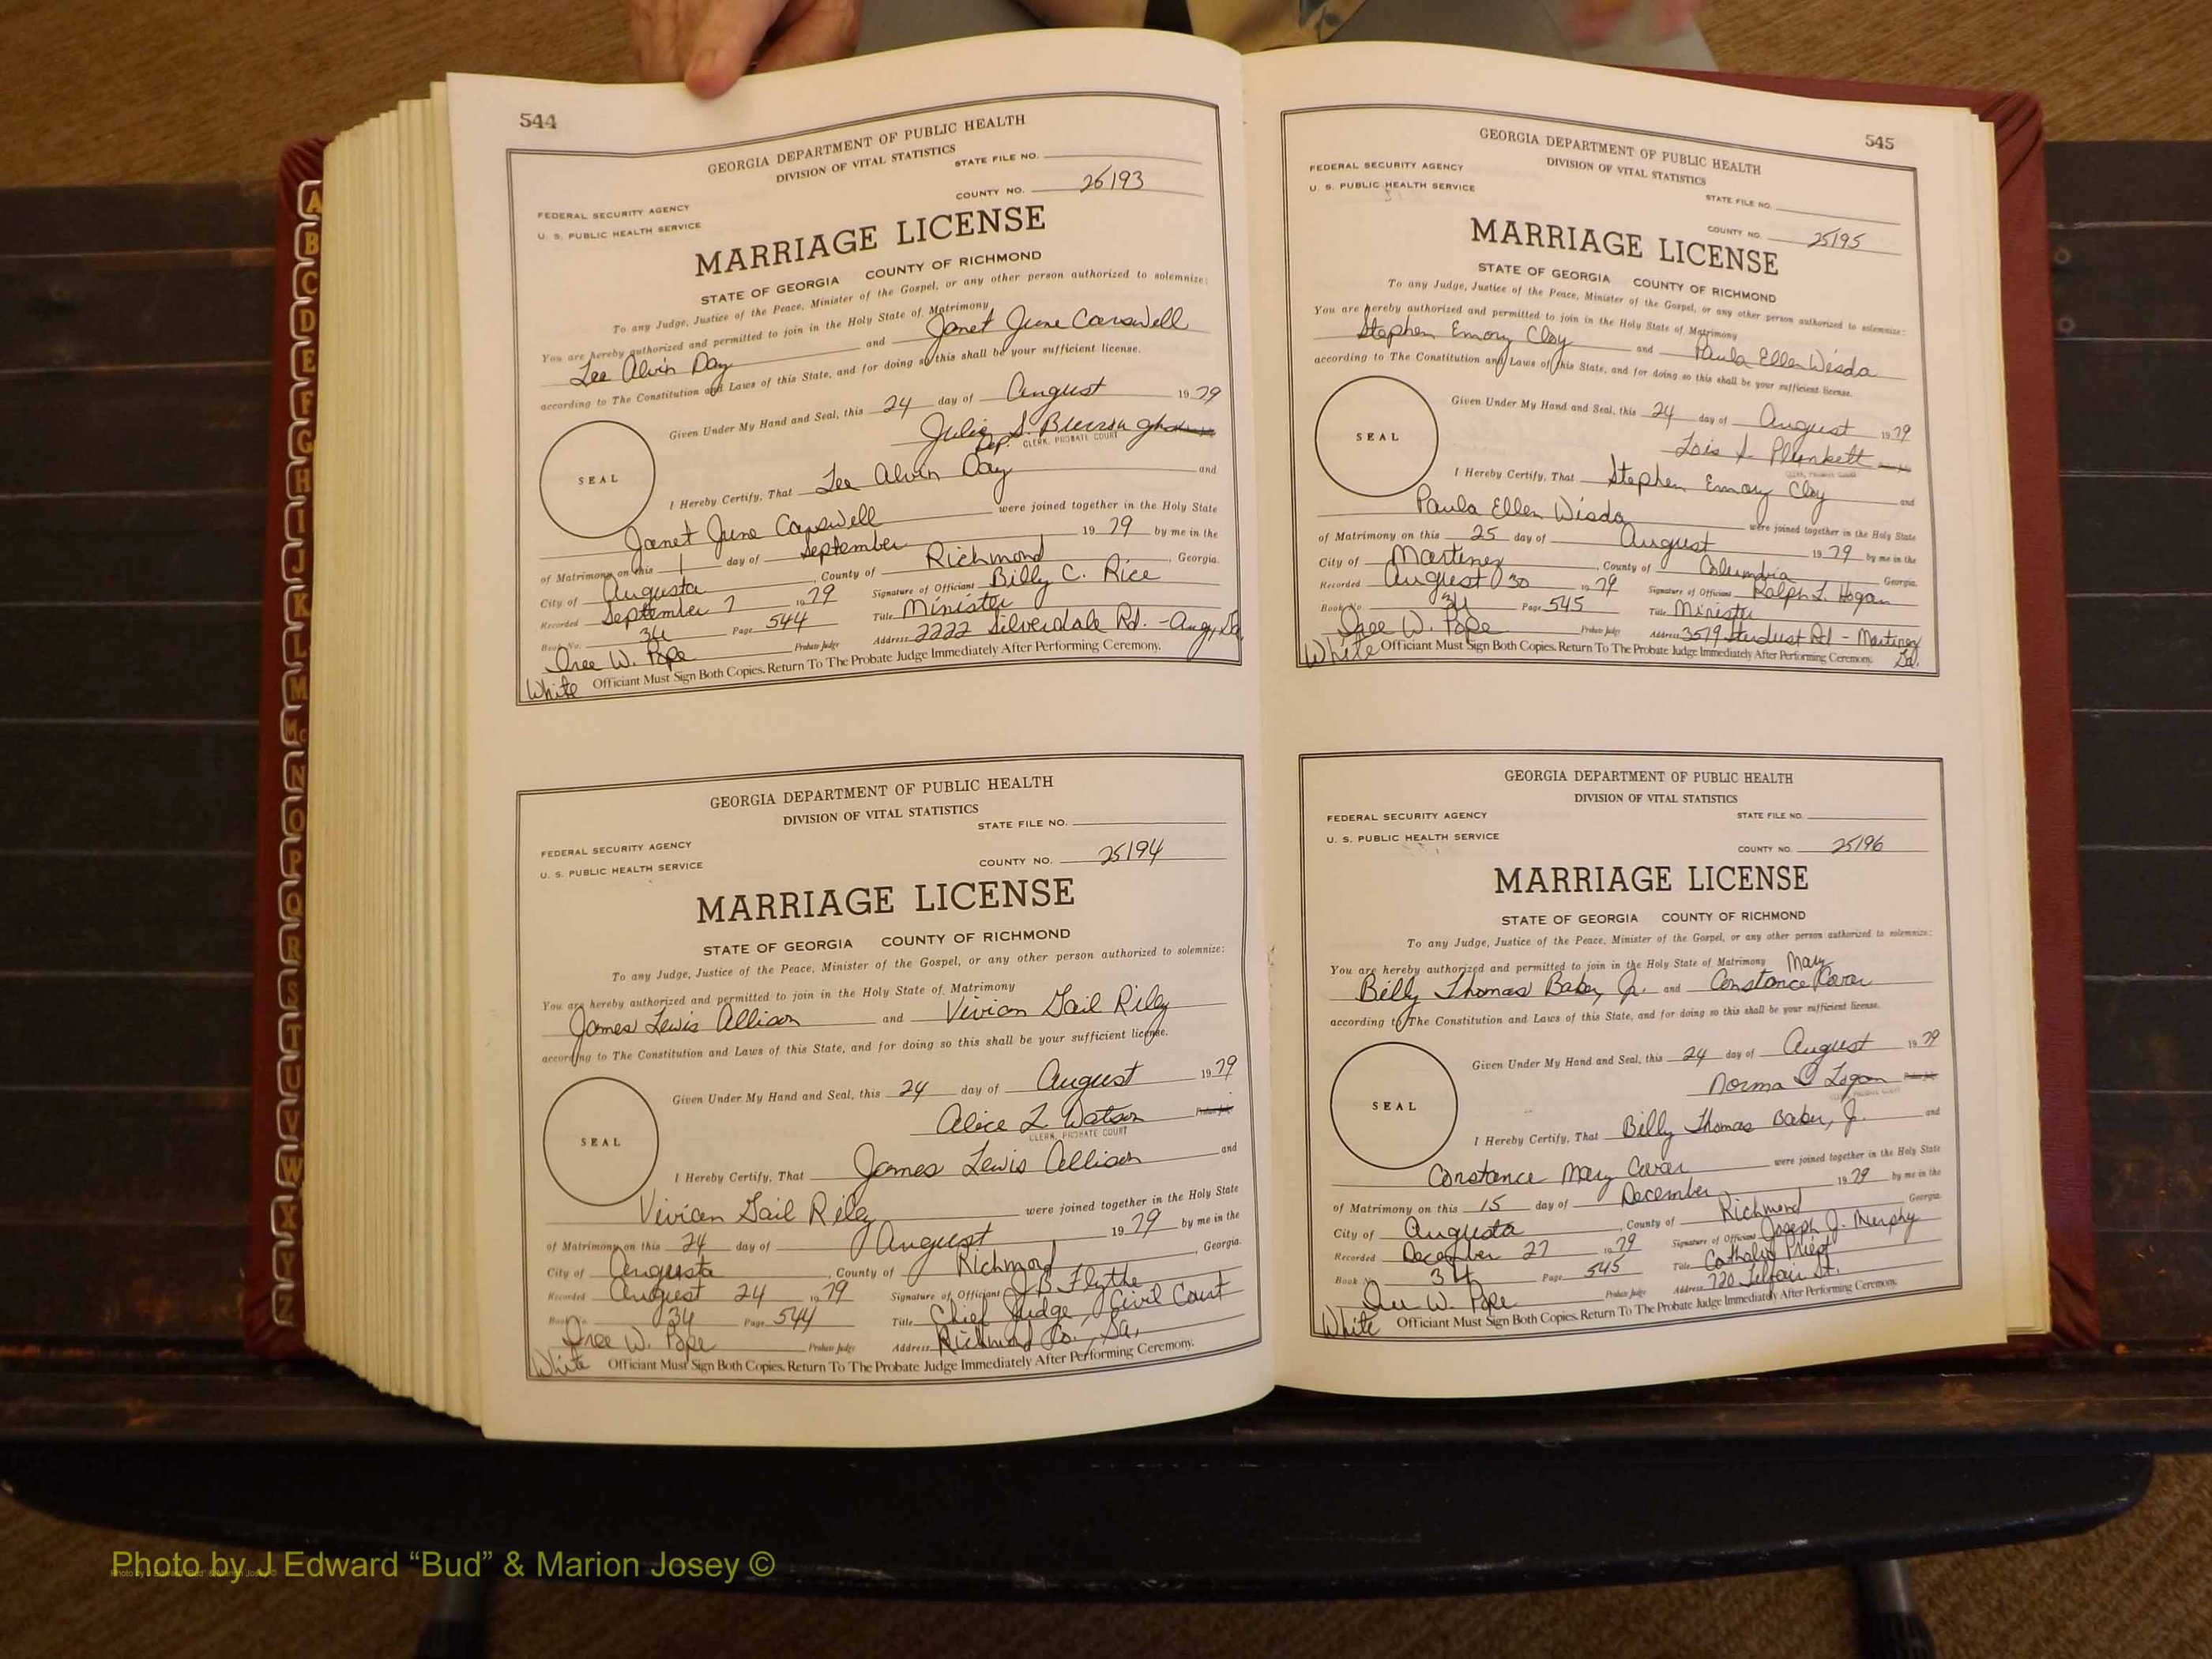 544
GEORGIA DEPARTMENT OF PUBLIC HEALTH
DIVISION OF VITAL STATISTICS
STATE FILE NO.
COUNTY NO. 26193
FEDERAL SECURITY AGENCY
U. S. PUBLIC HEALTH SERVICE
MARRIAGE LICENSE
STATE OF GEORGIA COUNTY OF RICHMOND
To any Judge, Justice of the Peace, Minister of the Gospel, or any other person authorized to solemnize:
You are hereby authorized and permitted to join in the Holy State of Matrimony
Lee Alvin Day and Janet June Carswell
according to The Constitution and Laws of this State, and for doing so this shall be your sufficient license.
Given Under My Hand and Seal, this 24 day of August 1979
Julie S.
Dep. CLERK, PROBATE COURT
SEAL
I Hereby Certify, That Lee Alvin Day and
Janet June Carswell were joined together in the Holy State
of Matrimony on this 1 day of September 1979 by me in the
City of Augusta, County of Richmond, Georgia.
Recorded September 7 1979 Signature of Officiant Billy C. Rice
Book No. 34 Page 544 Title Minister
Dree W. Pope Probate Judge Address 2222 Silverdale Rd. - Aug, Ga.
White Officiant Must Sign Both Copies. Return To The Probate Judge Immediately After Performing Ceremony.
GEORGIA DEPARTMENT OF PUBLIC HEALTH
DIVISION OF VITAL STATISTICS
STATE FILE NO.
FEDERAL SECURITY AGENCY
U. S. PUBLIC HEALTH SERVICE
COUNTY NO. 25194
MARRIAGE LICENSE
STATE OF GEORGIA COUNTY OF RICHMOND
To any Judge, Justice of the Peace, Minister of the Gospel, or any other person authorized to solemnize:
You are hereby authorized and permitted to join in the Holy State of Matrimony
James Lewis Allison and Vivian Gail Riley
according to The Constitution and Laws of this State, and for doing so this shall be your sufficient license.
Given Under My Hand and Seal, this 24 day of August 1979
Alice L. Watson Probate Judge
CLERK, PROBATE COURT
SEAL
I Hereby Certify, That James Lewis Allison and
Vivian Gail Riley were joined together in the Holy State
of Matrimony on this 24 day of August 1979 by me in the
City of Augusta, County of Richmond, Georgia.
Recorded August 24 1979 Signature of Officiant J.B. Flythe
Book No. 34 Page 544 Title Chief Judge, Civil Court
Dree W. Pope Probate Judge Address Richmond Co., Ga.
White Officiant Must Sign Both Copies. Return To The Probate Judge Immediately After Performing Ceremony.
545
GEORGIA DEPARTMENT OF PUBLIC HEALTH
DIVISION OF VITAL STATISTICS
FEDERAL SECURITY AGENCY
U. S. PUBLIC HEALTH SERVICE
STATE FILE NO.
COUNTY NO. 25195
MARRIAGE LICENSE
STATE OF GEORGIA COUNTY OF RICHMOND
To any Judge, Justice of the Peace, Minister of the Gospel, or any other person authorized to solemnize:
You are hereby authorized and permitted to join in the Holy State of Matrimony
Stephen Emory Clay and Paula Ellen Wisda
according to The Constitution and Laws of this State, and for doing so this shall be your sufficient license.
Given Under My Hand and Seal, this 24 day of August 1979
Lois S. Plunkett
CLERK, PROBATE COURT
SEAL
I Hereby Certify, That Stephen Emory Clay and
Paula Ellen Wisda were joined together in the Holy State
of Matrimony on this 25 day of August 1979 by me in the
City of Martinez, County of Columbia Georgia.
Recorded August 30 1979 Signature of Officiant Ralph L. Hogan
Book No. 34 Page 545 Title Minister
Dree W. Pope Probate Judge Address 3579 Stardust Rd - Martinez Ga.
White Officiant Must Sign Both Copies. Return To The Probate Judge Immediately After Performing Ceremony.
GEORGIA DEPARTMENT OF PUBLIC HEALTH
DIVISION OF VITAL STATISTICS
FEDERAL SECURITY AGENCY STATE FILE NO.
U. S. PUBLIC HEALTH SERVICE
COUNTY NO. 25196
MARRIAGE LICENSE
STATE OF GEORGIA COUNTY OF RICHMOND
To any Judge, Justice of the Peace, Minister of the Gospel, or any other person authorized to solemnize:
You are hereby authorized and permitted to join in the Holy State of Matrimony
Billy Thomas Baber, Jr. and Constance Mary
according to The Constitution and Laws of this State, and for doing so this shall be your sufficient license.
Given Under My Hand and Seal, this 24 day of August 1979
Norma Logan Probate Judge
CLERK, PROBATE COURT
SEAL
I Hereby Certify, That Billy Thomas Baber, Jr. and
Constance Mary were joined together in the Holy State
of Matrimony on this 15 day of December 1979 by me in the
City of Augusta, County of Richmond Georgia.
Recorded December 27 1979 Signature of Officiant Joseph J. Murphy
Book No. 34 Page 545 Title Catholic Priest
Dree W. Pope Probate Judge Address 720 Telfair St.
White Officiant Must Sign Both Copies. Return To The Probate Judge Immediately After Performing Ceremony.
A
B
C
D
E
F
G
H
I
J
K
L
M
Mc
N
O
P
Q
R
S
T
U
V
W
X
Y
Z
Photo by J Edward “Bud” & Marion Josey ©